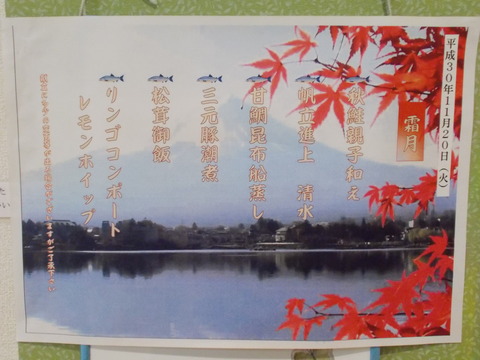 平成30年11月20日（火）
霜月
秋鮭親子和え
帆立進上　清水
甘鯛昆布船蒸し
三元豚潮煮
松茸御飯
リンゴコンポート
レモンホイップ